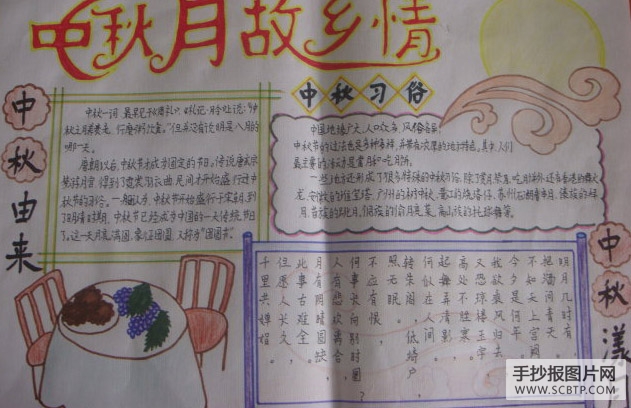 中秋月故乡情
中秋由来
中秋一词,最早见于《周礼》。
但并没有说明是八月的
那一天。
唐朝初年,中秋节才成为固定的节日。
中秋节的习俗。
中秋习俗
中国地缘广大,人口众多,风俗各异,
中秋节的过法也是多种多样,并带有浓厚的地方特色。其中,人们
最主要的活动是赏月和吃月饼。
一些地方还形成了很多特殊的中秋习俗。除了赏月、祭月、吃月饼外,还有香港的舞火
龙、安徽的堆宝塔、广州的树中秋、晋江的烧塔仔、苏州石湖看串月、傣族的拜
月、苗族的跳月、侗族的偷月亮菜、高山族的托球舞等。
中秋
明月几时有,
把酒问青天。
不知天上宫阙,
今夕是何年。
我欲乘风归去,
又恐琼楼玉宇,
高处不胜寒。
起舞弄清影,
何似在人间。
转朱阁,低绮户,
照无眠。
不应有恨,
何事长向别时圆。
人有悲欢离合,
月有阴晴圆缺,
此事古难全。
但愿人长久,
千里共婵娟。
手抄报图片网
WWW.SCBTP.COM